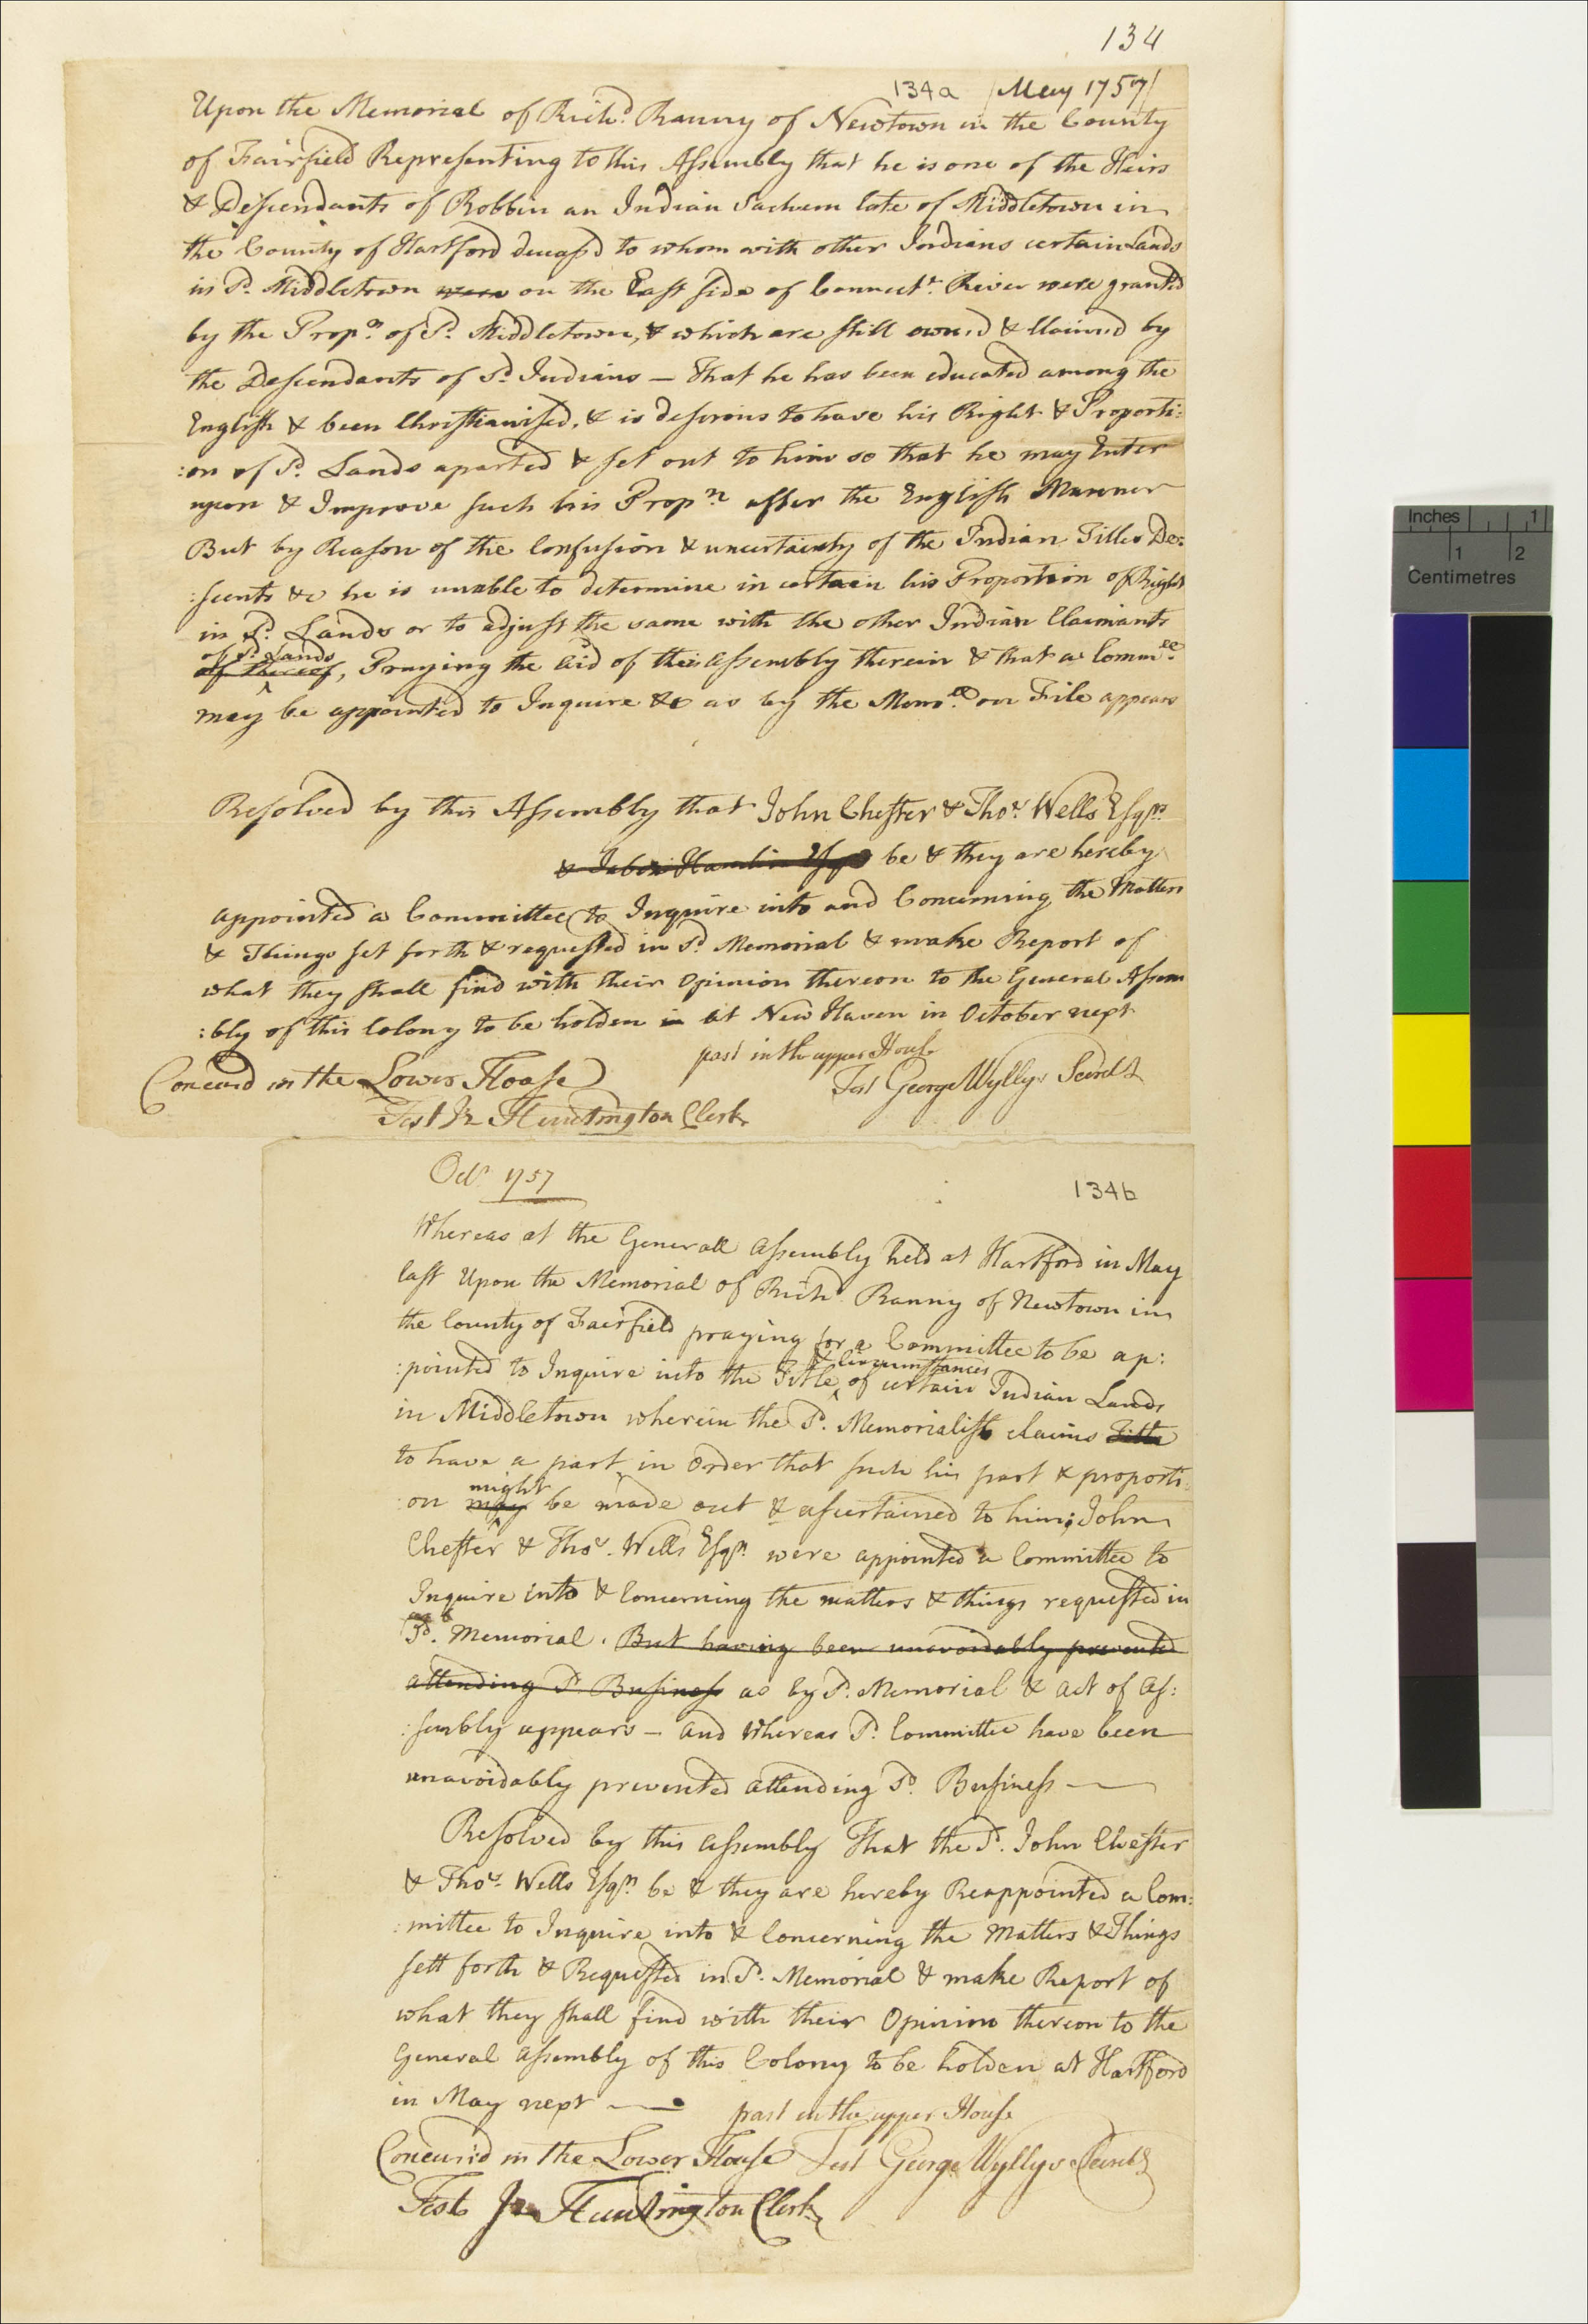 134
134a /May 1757/
Upon the Memorial of Richd. Ranny of Newtown in the County
of Fairfield Representing to this Assembly that he is one of the Heirs
& Descendants of Robbin an Indian Sachem late of Middletown in
the County of Hartford deceasd to whom with other Indians certain Lands
in Sd. Middletown were on the East side of Connectt. River were granted
by the Propn. of Sd. Middletown, & which are still owned & Claimed by
the Descendants of Sd. Indians — That he has been educated among the
English & been Christianised, & is desirous to have his Right & Proporti:
:on of Sd. Lands aparted & set out to him so that he may Enter
upon & Improve such his Propn after the English Manner
But by Reason of the Confusion & uncertainty of the Indian Titles De:
:scents &c he is unable to determine in certain his Proportion of Right
in Sd. Lands or to adjust the same with the other Indian Claimants
of Sd. Lands
of thereof, Praying the aid of this Assembly therein & that a Commee.
may be appointed to Inquire &c as by the Meml. on File appears
Resolved by this Assembly that John Chester & Thos. Wells Esqrs.
& Jabez Hamlin Esqr be & they are hereby
appointed a Committee to Inquire into and Concerning the Matters
& Things set forth & requested in Sd. Memorial & make Report of
what they shall find with their Opinion thereon to the General Assem
:bly of this Colony to be holden in at New Haven in October next
past in the upper House
Test George Wyllys Secrety
Concurd in the Lower House
Test Jr Huntington Clerk
Octr. 1757
134b
Whereas at the Generall Assembly held at Hartford in May
last Upon the Memorial of Richd. Ranny of Newtown in
the County of Fairfield praying for a Committee to be ap:
& Circumstances
:pointed to Inquire into the Title of certain Indian Lands
in Middletown wherein the Sd. Memorialist claims Title
to have a part in Order that such his part & proporti:
might
:on may be made out & ascertained to him; John
Chester & Thos. Wells Esqrs. were appointed a Committee to
Inquire into & Concerning the matters & things requested in
Sd. Memorial. But having been unavoidably prevented
attending Sd. Business as by Sd. Memorial & act of As:
:sembly appears — And Whereas Sd. Committee have been
unavoidably prevented attending Sd. Business —
Resolved by this Assembly That the Sd. John Chester
& Thos. Wells Esqrs. be & they are hereby Reappointed a Com:
:mittee to Inquire into & Concerning the Matters & Things
sett forth & Requested in Sd. Memorial & make Report of
what they shall find with their Opinion thereon to the
General Assembly of this Colony to be holden at Hartford
in May next —
past in the upper House
Concurd in the Lower House Test George Wyllys Secrety
Test Jr Huntington Clerk
Inches 1
1 2
Centimetres